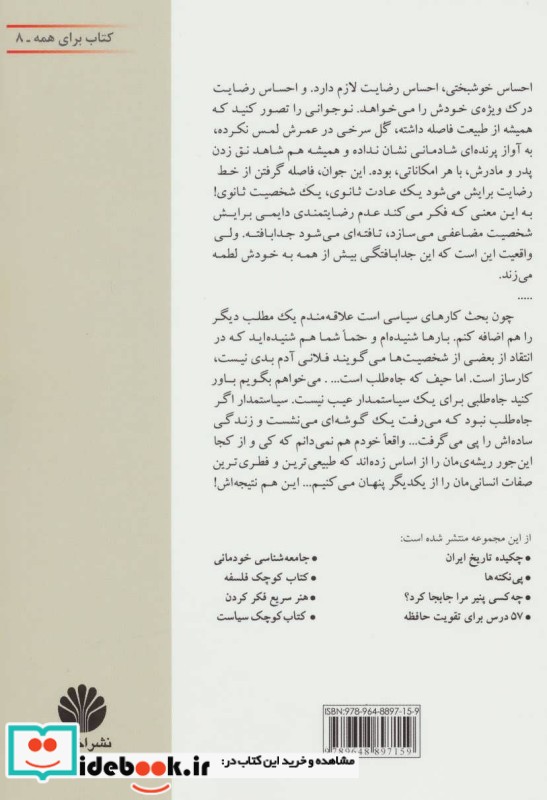 کتاب برای همه - ۸
احساس خوشبختی، احساس رضایت لازم دارد. و احساس رضایت
درک ویژه‌ی خودش را می‌خواهد. نوجوانی را تصور کنید که
همیشه از طبیعت فاصله داشته، گل سرخی در عمرش لمس نکرده،
به آواز پرنده‌ای شادمانی نشان نداده و همیشه هم شاهد نق زدن
پدر و مادرش، با هر امکاناتی، بوده. این جوان، فاصله گرفتن از خط
رضایت برایش می‌شود یک عادت ثانوی، یک شخصیت ثانوی!
به این معنی که فکر می‌کند عدم رضایتمندی دایمی برایش
شخصیت مضاعفی می‌سازد، تافته‌ای می‌شود جدابافته. ولی
واقعیت این است که این جدابافتگی بیش از همه به خودش لطمه
می‌زند.
.....
چون بحث کارهای سیاسی است علاقه‌مندم یک مطلب دیگر
را هم اضافه کنم. بارها شنیده‌ام و حتماً شما هم شنیده‌اید که در
انتقاد از بعضی از شخصیت‌ها می‌گویند فلانی آدم بدی نیست،
کارساز است. اما حیف که جاه‌طلب است... . می‌خواهم بگویم باور
کنید جاه‌طلبی برای یک سیاستمدار عیب نیست. سیاستمدار اگر
جاه‌طلب نبود که می‌رفت یک گوشه‌ای می‌نشست و زندگی
ساده‌اش را پی می‌گرفت... واقعاً خودم هم نمی‌دانم که کی و از کجا
این‌جور ریشه‌ی‌مان را از اساس زده‌اند که طبیعی‌ترین و فطری‌ترین
صفات انسانی‌مان را از یکدیگر پنهان می‌کنیم... این هم نتیجه‌اش!
از این مجموعه منتشر شده است:
• چکیده تاریخ ایران
• پی‌نکته‌ها
• چه‌کسی پنیر مرا جابجا کرد؟
• ۵۷ درس برای تقویت حافظه
• جامعه‌شناسی خودمانی
• کتاب کوچک فلسفه
• هنر سریع فکر کردن
• کتاب کوچک سیاست
ISBN:978-964-8897-15-9
9789648897159
نشر
مشاهده و خرید این کتاب در:
idebook.ir